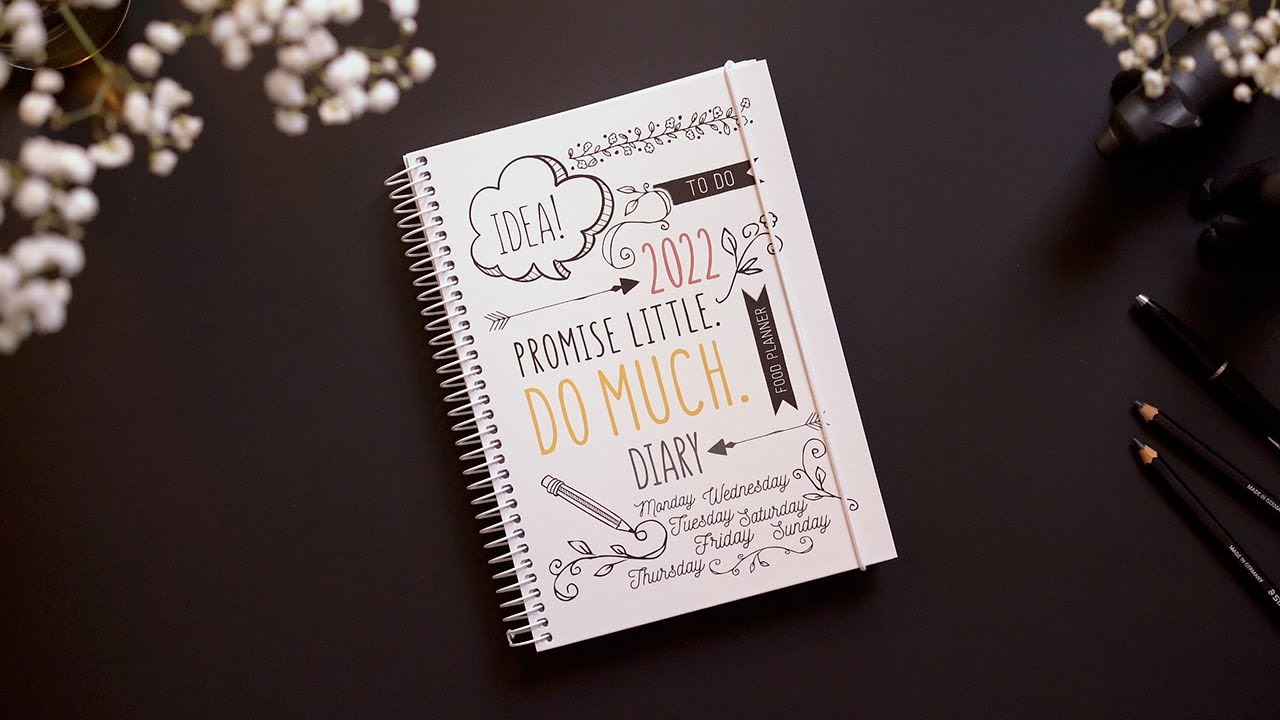 TO DO
IDEA!
2022
PROMISE LITTLE.
FOOD PLANNER
DO MUCH.
DIARY
Monday Wednesday
Tuesday Saturday
Friday Sunday
Thursday
MADE IN GERMANY
MADE IN GERMANY